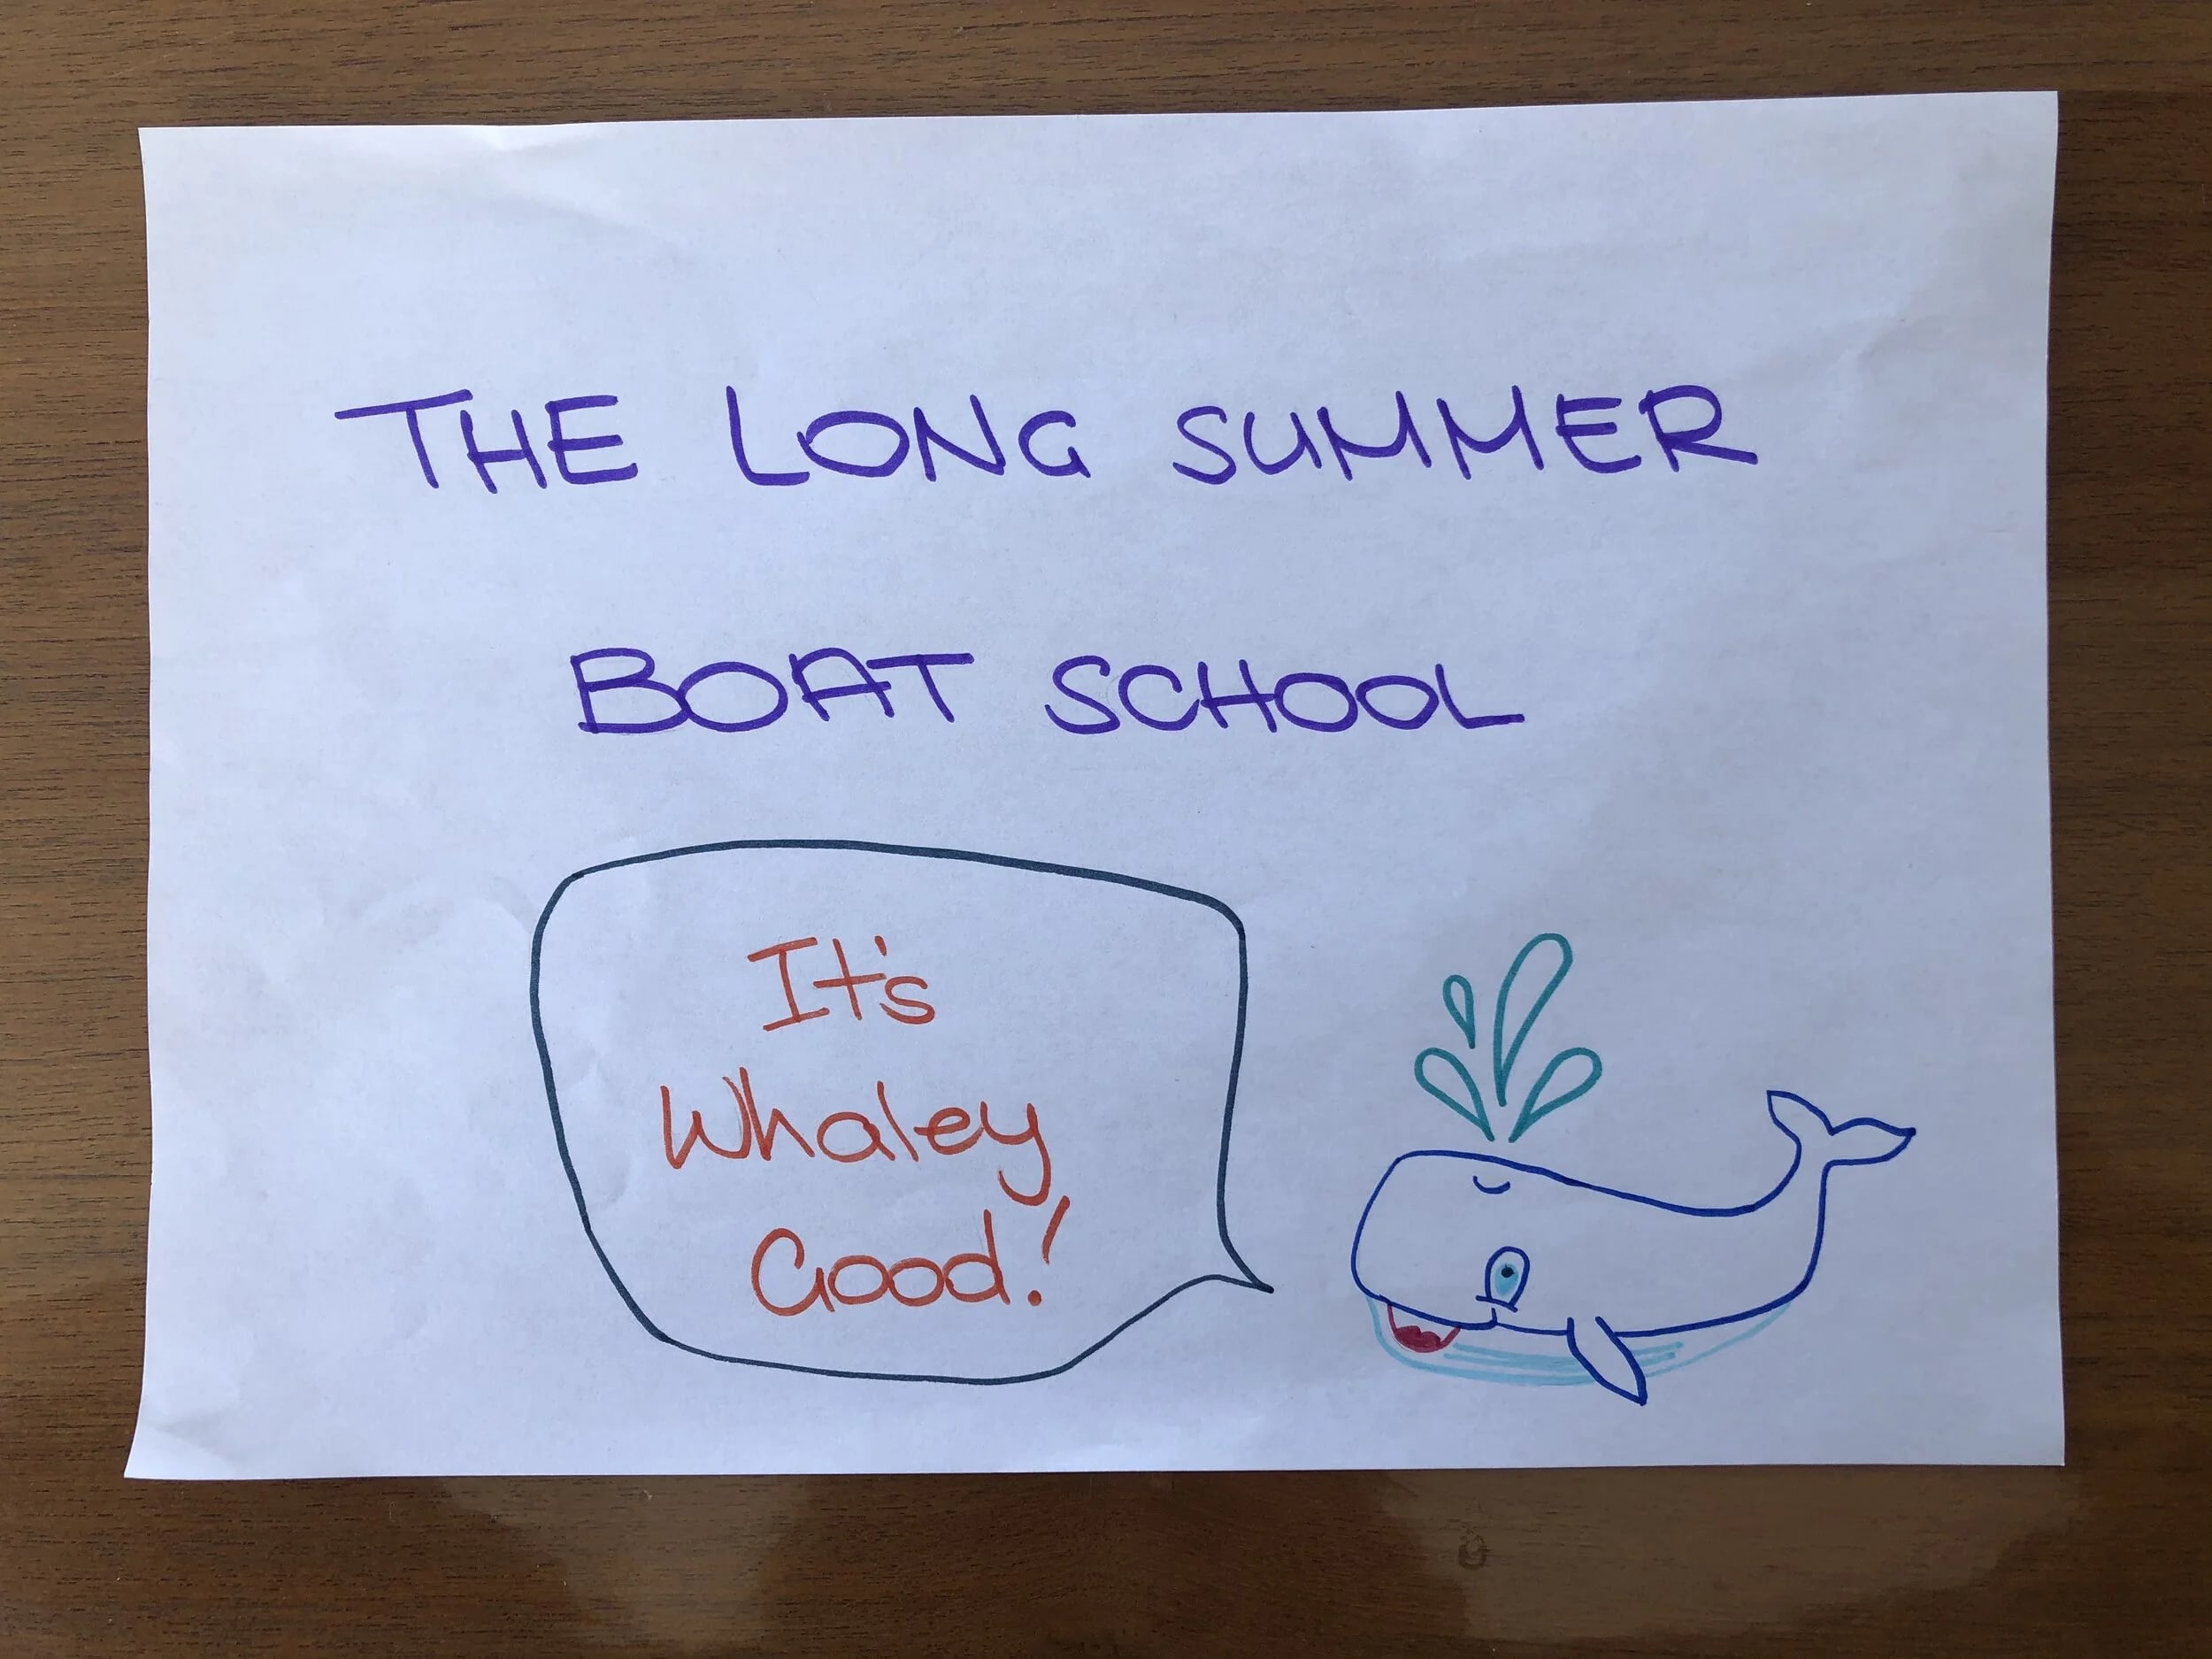 THE LONG SUMMER
BOAT SCHOOL
It's
Whaley
Good!